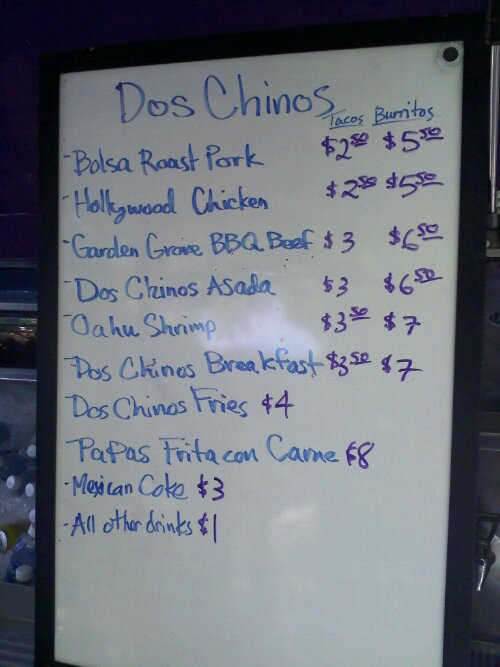 Dos Chinos
Tacos Burritos
- Bolsa Roast Pork $2.50 $5.50
- Hollywood Chicken $2.50 $5.50
- Garden Grove BBQ Beef $3 $6.50
- Dos Chinos Asada $3 $6.50
- Oahu Shrimp $3.50 $7
- Dos Chinos Breakfast $3.50 $7
Dos Chinos Fries $4
Papas Frita con Carne $8
- Mexican Coke $3
- All other drinks $1